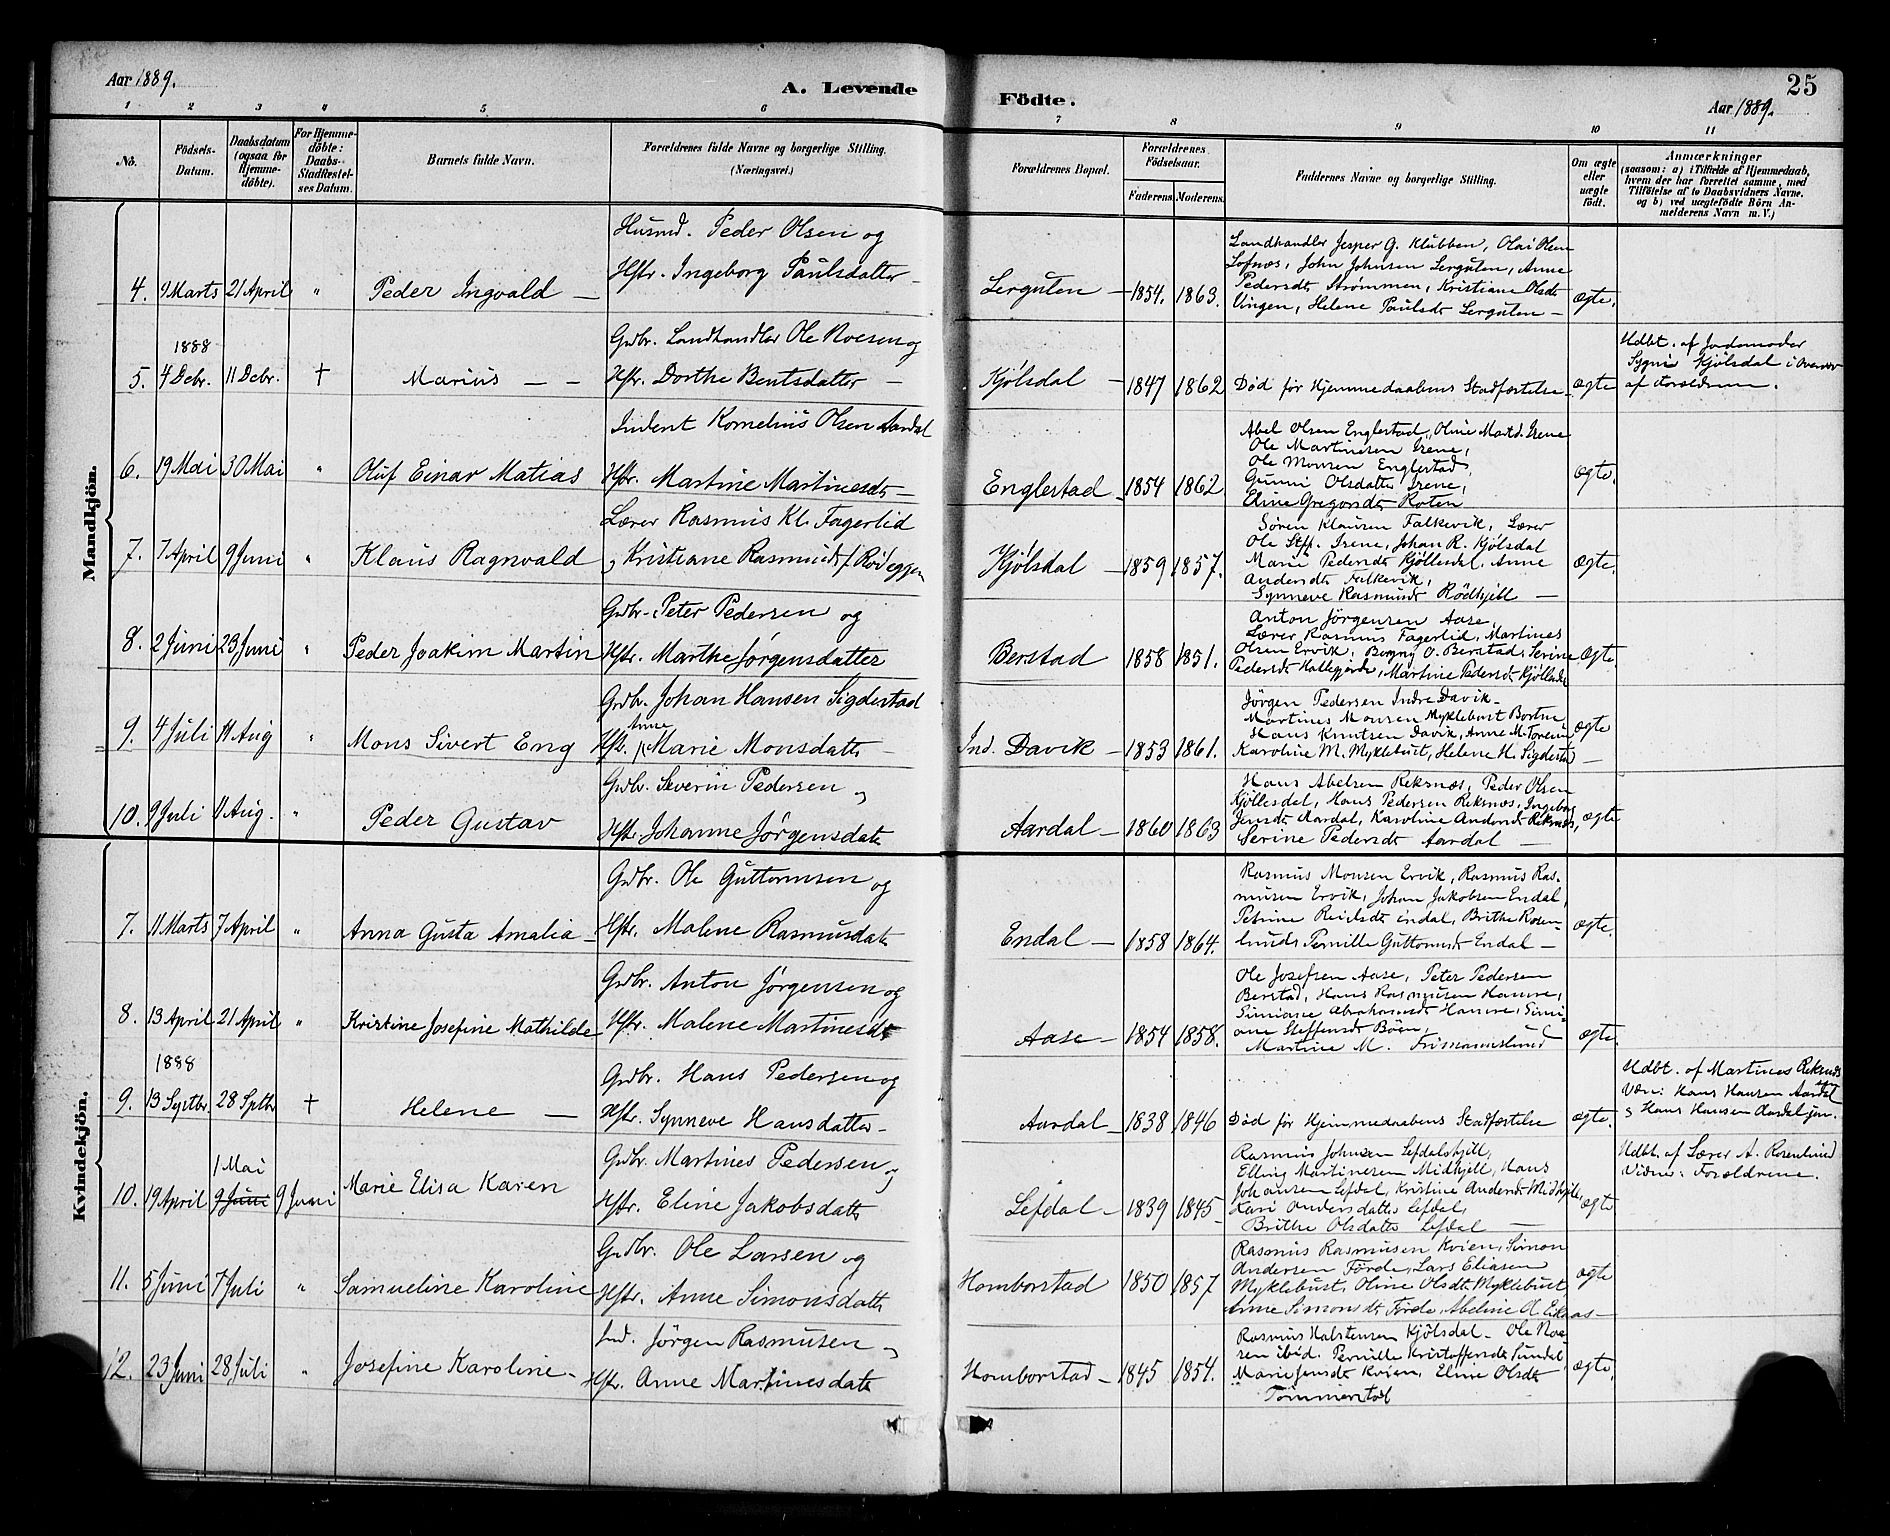 Aar 1889.
A. Levende
Födte.
25
Aar 1889.
1 2 3 4 5 6 7 8 9 10 11
No.
Födsels-Datum.
Daabsdatum (ogsaa for Hjemme-döbte).
For Hjemme-döbte: Daabs-Stadfæstel-ses Datum.
Barnets fulde Navn.
Forældrenes fulde Navne og borgerlige Stilling. (Næringsvei.)
Forældrenes Bopæl.
Forældrenes Födselsaar.
Faderens. Moderens.
Faddernes Navne og borgerlige Stilling.
Om ægte eller uægte födt.
Anmærkninger
(saasom: a) i Tilfælde af Hjemmedaab,
hvem der har forrettet samme, med
Tilföielse af to Daabsvidners Navne.
og b) ved uægtefödte Börn An-
melderens Navn m. V.)
Mandkjön.
Husmd. Peder Olsen og
Hstr. Ingeborg Paulsdatter
4. 9 Marts 21 April " Peder Ingvald —
Lerguten — 1854. 1863.
Landhandler Jesper G. Klubben, Olai Olsen
Lofnæs, John Johnsen Lerguten, Anne
Pedersdt Strømmen, Kristiane Olsdt
Vingen, Helene Paulsdt Lerguten —
ægte.
1888
Grdbr. Landhandler Ole Noesen og
5. 4 Debr. 11 Debr. † Marius — — Hstr. Dorthe Bentsdatter —
Kjölsdal — 1847 1862 Död för Hjemmedaabens Stadfæstelse ægte
Hdbt. af Jordemoder
Sygni Kjölsdal i Overvær
af Forældrene.
Kornelius Olsen Aardal
6. 19 Mai 30 Mai " Oluf Einar Matias Hstr. Martine Martinesdt —
Englestad — 1854 1862
Abel Olsen Englestad, Oline Martd. Irene
Ole Martinesen Irene,
Ole Monsen Englestad,
Gunni Olsdatter Irene,
Eline Gregorsdt Roten
ægte.
Lærer Rasmus Kl. Fagerlid
7. 7 April 9 Juni " Klaus Ragnvald Kristiane Rasmusdt f. Rödeggen
Kjölsdal — 1859 1857.
Sören Klausen Falkevik, Lærer
Ole Stff. Irene, Johan R. Kjölsdal
Marie Pedersdt Kjöllesdal, Anne
Andersdt Falkevik,
Synneve Rasmusdt Rödhjell —
ægte.
Grdbr. Peter Pedersen og
8. 2 Juni 23 Juni " Peder Joakim Martin Hstr. Marthe Jørgensdatter
Berstad 1858 1851.
Anton Jørgensen Aase,
Lærer Rasmus Fagerlid, Martines
Olsen Ervik, O. Berstad, Serine
Pedersdt, Martine Pedersdt
ægte.
Grdbr. Johan Hansen Sigdestad
Anne
9. 4 Juli 11 Aug " Mons Sivert Eng Hstr. Marie Monsdatt —
Ind. Davik — 1853 1861.
Jörgen Pedersen Indre Davik —
Martines Monsen Myklebust Bortne
Hans Knutsen Davik, Anne M.
Karoline M. Myklebust, Helene H. Sigdestad —
ægte
Grdbr. Severin Pedersen
10. 9 Juli 11 Aug. " Peder Gustav Hstr. Johanne Jørgensdatt
Aardal — 1860 1863
Hans Abelsen Reksnæs, Peder Olsen
Kjöllesdal, Hans Pedersen Reksnæs, Ingeborg
Jensdt Aardal, Karoline Andersdt Reksnæs,
Serine Pedersdt Aardal —
ægte
Kvindekjön.
Grdbr. Ole Guttormsen og
7. 11 Marts 7 April " Anna Gusta Amalia — Hstr. Malene Rasmusdatt
Endal — 1858 1864.
Rasmus Monsen Ervik, Rasmus Ras-
musen Ervik, Johan Jakobsen Endal,
Petrine Endal, Brithe Rosen-
lund, Pernille Guttormsdt Endal —
ægte.
Grdbr. Anton Jørgensen og
8. 13 April 21 April " Kristine Josefine Mathilde Hstr. Malene Martinesdt
Aase — 1854 1858.
Ole Josefsen Aase, Peter Pedersen
Berstad, Hans Rasmusen Hamre,
Simiane Abrahamsdt Hamre, Simi-
ane Steffensdt Böen,
Martine M. Frimannslund
ægte.
1888
Grdbr. Hans Pedersen og
9. 13 Septbr. 28 Sptbr † Helene — Hstr. Synneve Hansdatter —
Aardal — 1838 1846 Död för Hjemmedaabens Stadfæstelse ægte.
Hdbt. af Martines Reksnes
Hans Hansen Aardal
& Hans Hansen Aardal jun.
Grdbr. Martines Pedersen og
1 Mai
10. 19 April 9 Juni 9 Juni Marie Elisa Karen Hstr. Eline Jakobsdatt
Lefdal — 1839 1845
Rasmus Johnsen Lefdalshjell,
Elling Martinesen Midhjell, Hans
Johansen Lefdal, Kristine Andersdt Midhjell,
Kari Andersdatter Lefdal,
Brithe Olsdatter Lefdal —
ægte
Hdbt. af Lærer A. Rosenlund
Vidner: Forældrene.
Grdbr. Ole Larsen og
11. 5 Juni 7 Juli " Samueline Karoline Hstr. Anne Simonsdatt
Homborstad 1850 1857
Rasmus Rasmusen Kvien, Simon
Andersen Förde, Lars Eliasen
Myklebust, Oline Olsdt Myklebust,
Anne Simonsdt Förde, Abeline A. Eikaas —
ægte
Ind. Jörgen Rasmusen
12. 23 Juni 28 Juli " Josefine Karoline — Hstr. Anne Martinesdatt
Homborstad — 1845 1854.
Rasmus Halstensen Kjölsdal — Ole Noe-
sen ibid. Pernille Kristoffersdt Sundal
Marie Jensdt Kvien, Eline Olsdt
Tommerstad
ægte.